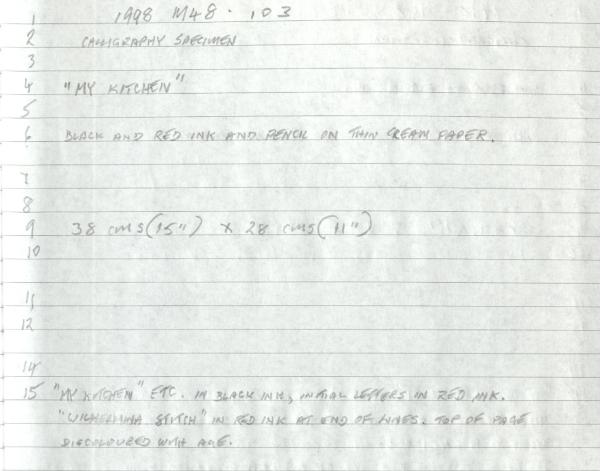 1 1998 M48 . 103
2 CALLIGRAPHY SPECIMEN
3
4 "MY KITCHEN"
5
6 BLACK AND RED INK AND PENCIL ON THIN CREAM PAPER.
7
8
9 38 cms (15") x 28 cms (11")
10
11
12
14
15 "MY KITCHEN" ETC. IN BLACK INK, INITIAL LETTERS IN RED INK.
"WILHELMINA STITCH" IN RED INK AT END OF LINES. TOP OF PAGE
DISCOLOURED WITH AGE.